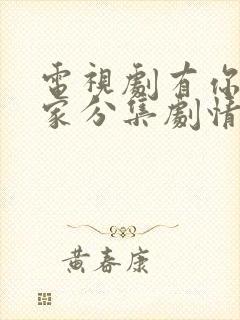 電視劇有你
家分集劇情
黃春康